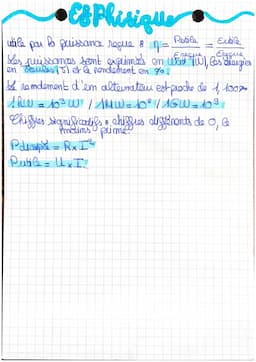 ES Phisique
utile par la puissance reçue : η = Putile/Ereçue = Eutile/Ereçue
Les puissances sont exprimés en Watt (W), les énergies
en Joules (J) et le rendement en %.
Le rendement d'em alternateur est proche de 1, 100%
1kW = 10³ W / 1MW = 10⁶ / 1GW = 10⁹
Chiffres significatifs : chiffres différents de 0, le
moins prime.
Pdissipé = R x I²
Putile = U x I